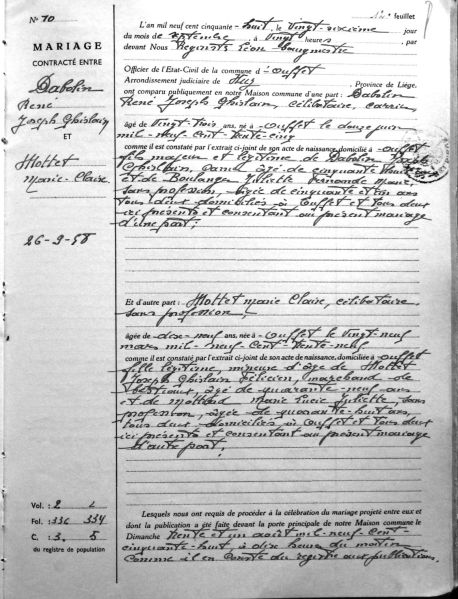 N° 70
MARIAGE
CONTRACTÉ ENTRE
Dabolin
René
Joseph Ghislain
ET
Mottet
Marie-Claire
26-9-58
Vol. : 2
Fol. : 336 334
C. : 3, 5
du registre de population
feuillet
L'an mil neuf cent cinquante-huit, le vingt-sixième jour
du mois de septembre, à vingt heures, par
devant Nous Regnists Léon Bourgmestre
Officier de l'Etat-Civil de la commune d'Ouffet
Arrondissement judiciaire de Huy, Province de Liège,
ont comparu publiquement en notre Maison commune d'une part : Dabolin
René Joseph Ghislain, célibataire, carrier
âgé de vingt-trois ans, né à Ouffet le douze juin
mil-neuf-cent-trente-cinq
comme il est constaté par l'extrait ci-joint de son acte de naissance, domicilié à Ouffet
fils majeur et légitime de Dabolin
Ghislain, âgé de cinquante
et de Boulanger Juliette Fernande Marie,
sans profession, âgée de cinquante et un ans
tous deux domiciliés à Ouffet et tous deux
ici présents et consentant au présent mariage
d'une part;
Et d'autre part : Mottet Marie Claire, célibataire
sans profession
âgée de dix-neuf ans, née à Ouffet le vingt-neuf
mars mil-neuf-cent-trente-neuf
comme il est constaté par l'extrait ci-joint de son acte de naissance, domiciliée à Ouffet
fille légitime, mineure d'âge de Mottet
Joseph Ghislain Félicien, marchand de
bestiaux, âgé de quarante-neuf ans
et de Mottard Marie Lucie Juliette, sans
profession, âgée de quarante-huit ans,
tous deux domiciliés à Ouffet et tous deux
ici présents et consentant au présent mariage
d'autre part.
Lesquels nous ont requis de procéder à la célébration du mariage projeté entre eux et
dont la publication a été faite devant la porte principale de notre Maison commune le
Dimanche trente et un août mil-neuf-cent-
cinquante-huit à dix heures du matin
comme il en conste du registre aux publications.